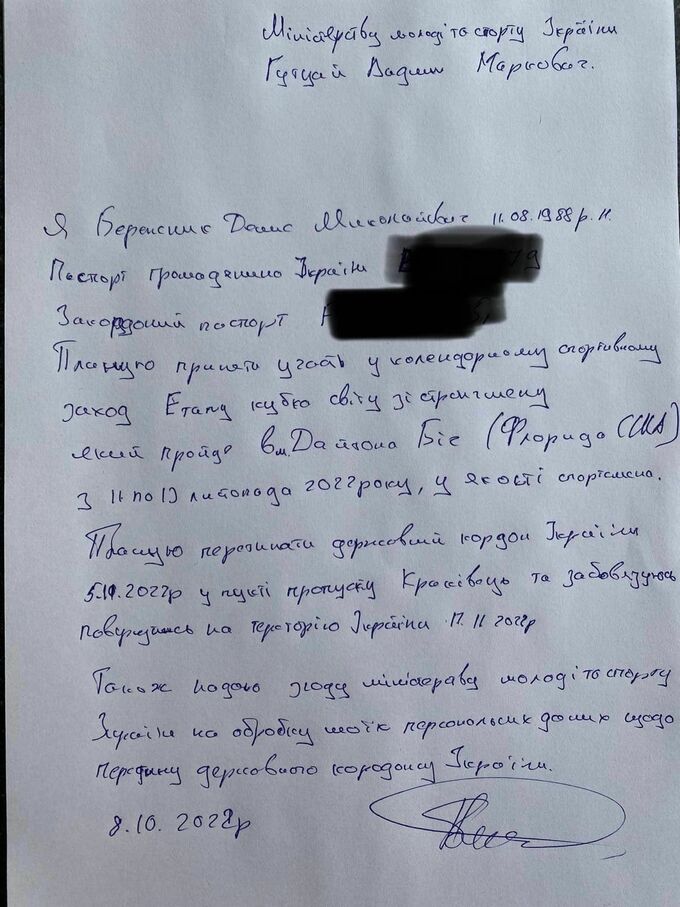 Міністерству молоді та спорту України
Гутцайт Вадим Маркович.
Я Денис Миколайович 11.08.1988 р.н.
Паспорт громадянина України
Закордоний паспорт
Планую приняти участь у календарному спортивному
заход Етапу кубко світу зі стронгмену
який пройде в м. Дайтона Біг (Флорида США)
з 11 по 13 листопада 2022 року, у якості спортсмена.
Планую перетинати державний кордон України
5.11.2022р у пункті пропуску Краківець та забовязуюсь
повернутись на територію України 17.11 2022р
Також надаю згоду міністерству молоді та спорту
України на обробку моїх персональних даних щодо
перетину державного кордону України.
8.10.2022р